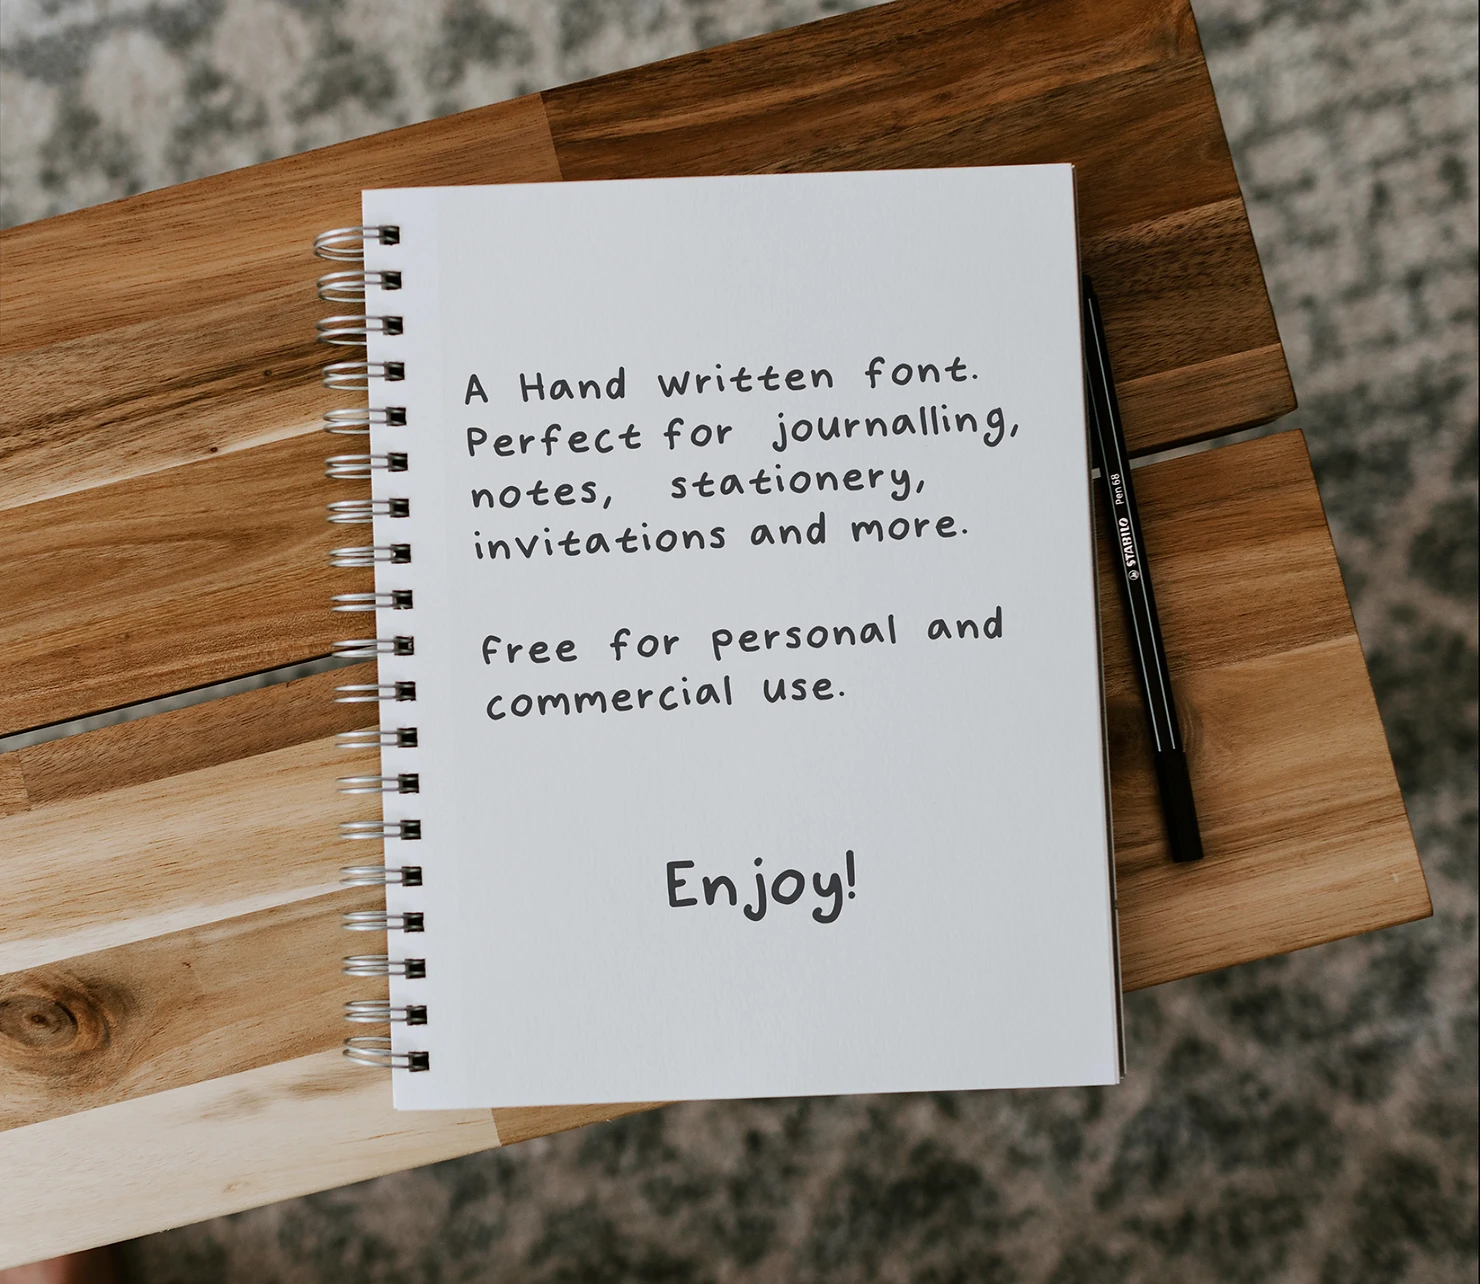 A Hand written font.
Perfect for journalling,
notes, stationery,
invitations and more.
Free for personal and
commercial use.
Enjoy!
STABILO Pen 68